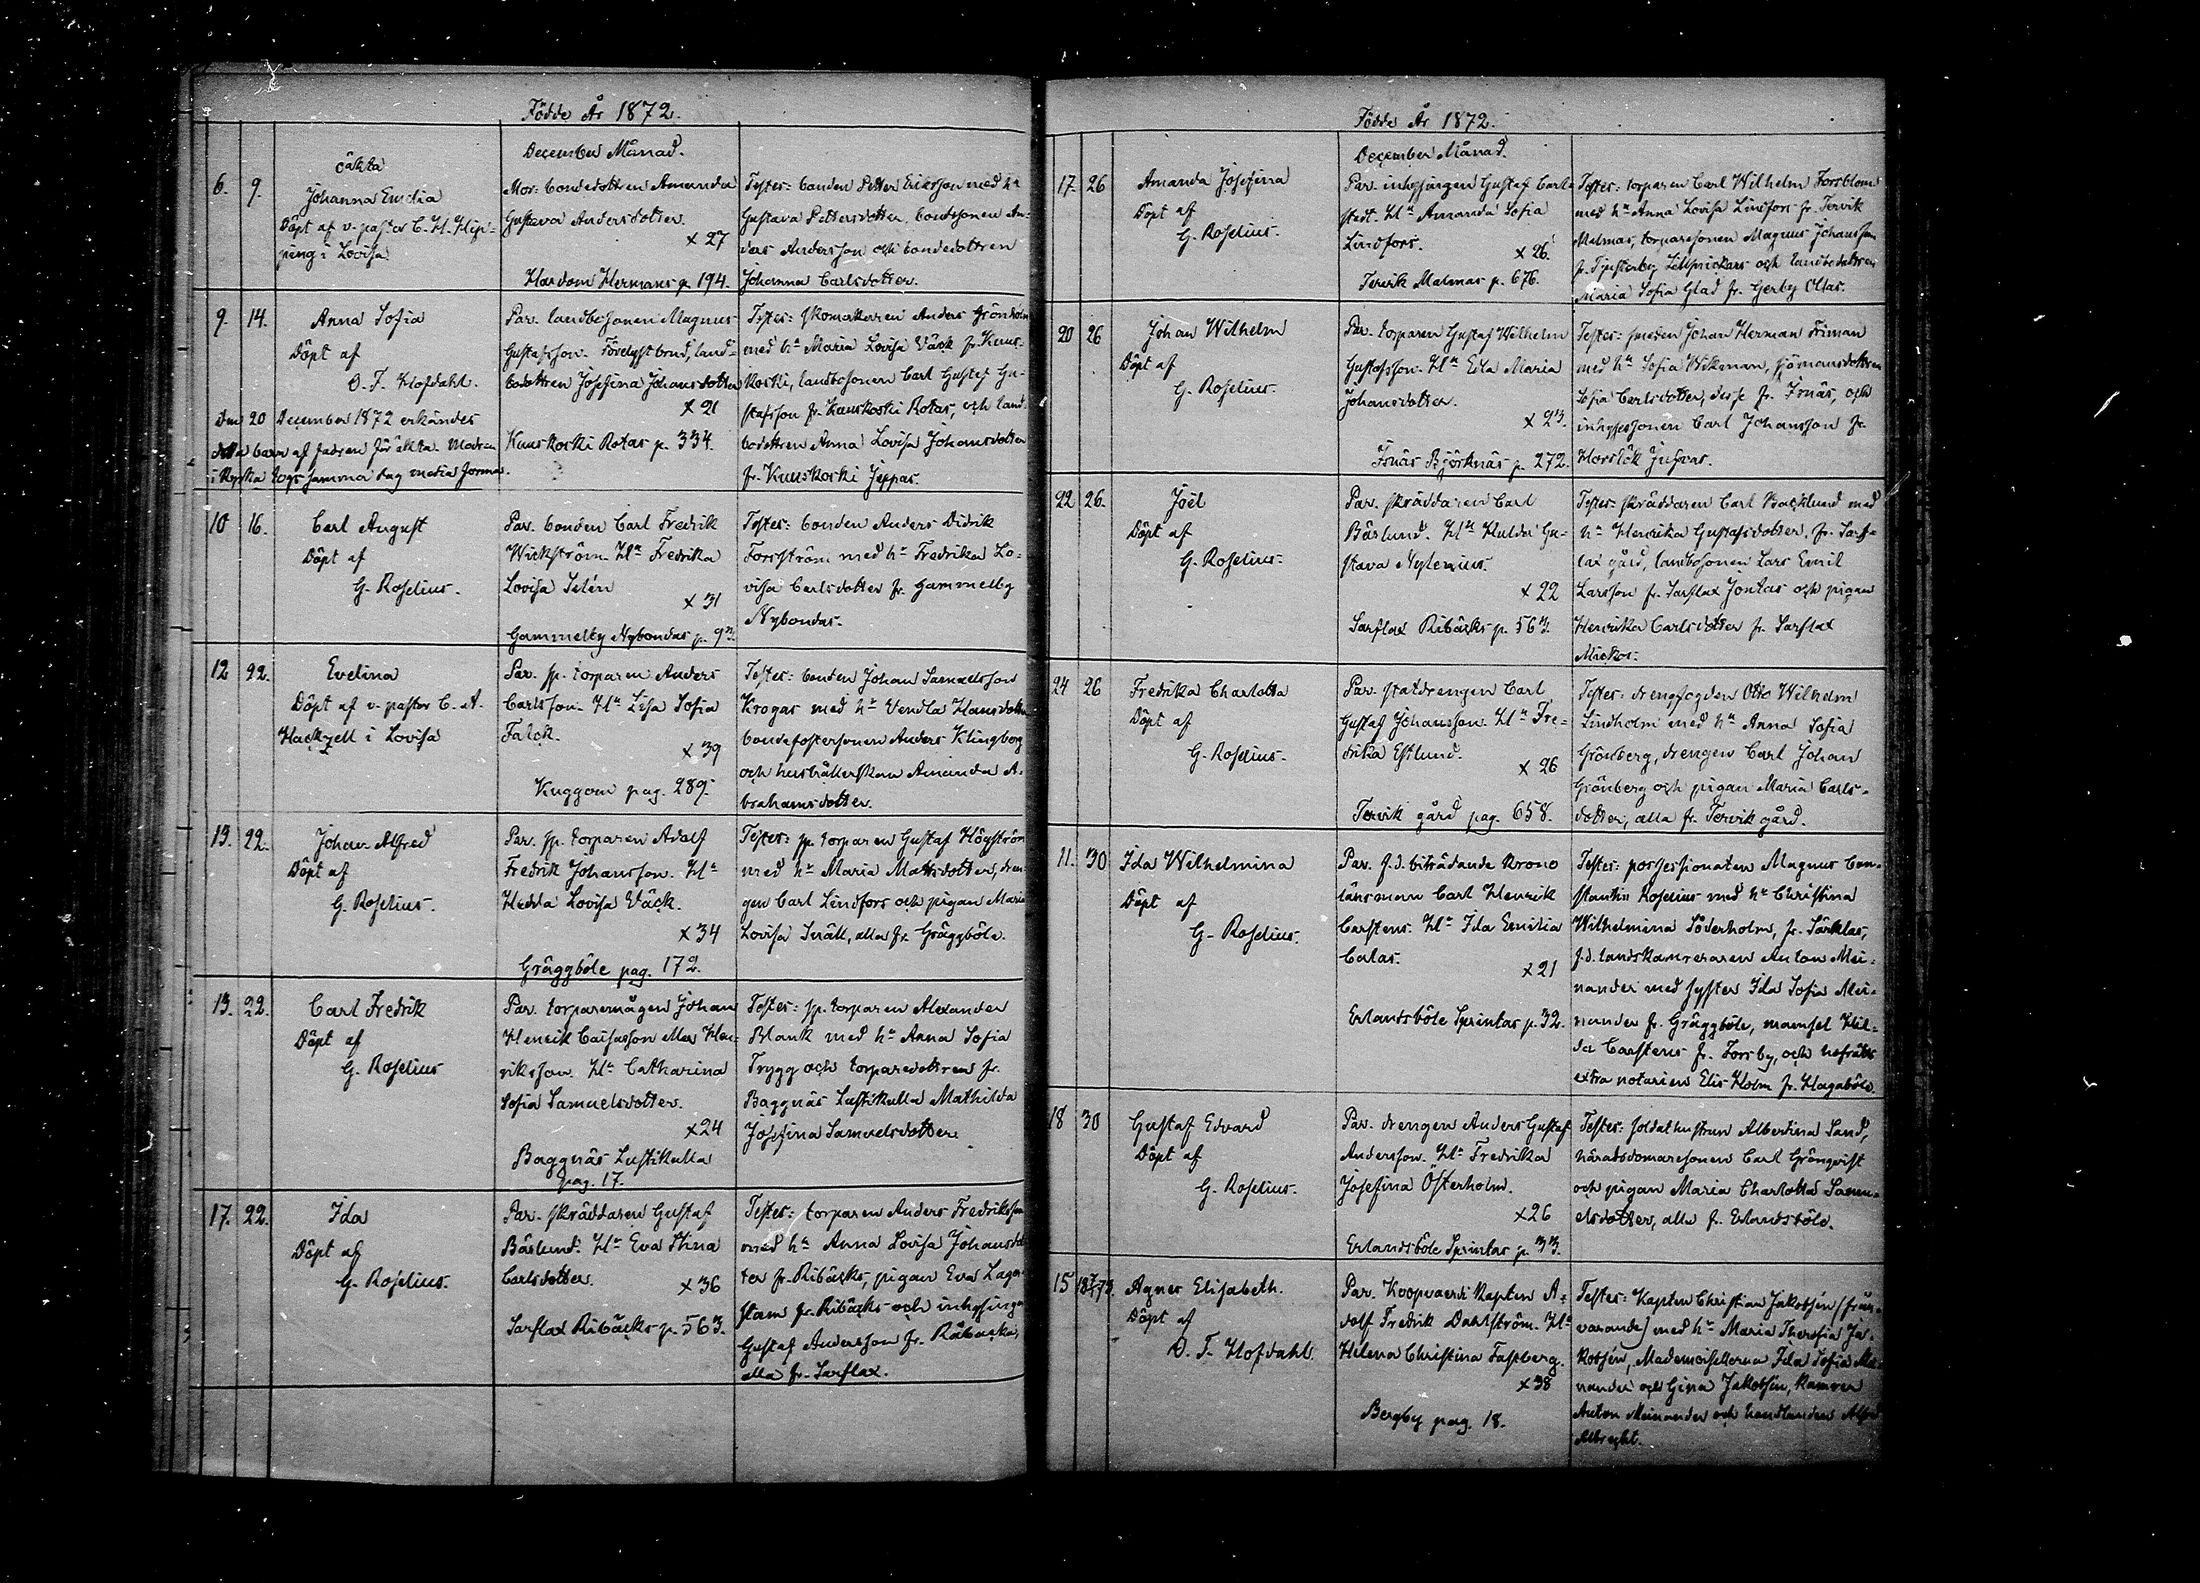 Födde År 1872.
December Månad.
6. 9.
oäkta
Johanna Emelia
Döpt af v. pastor C. H. Hip-
ping i Lovisa
Mor: bondedottren Amanda
Gustava Andersdotter.
x 27
Hardom Hermans p. 194.
Testes: bonden Petter Eriksson med hu
Gustava Pettersdotter, bondsonen An-
ders Andersson och bondedottren
Johanna Carlsdotter.
9. 14.
Anna Sofia
Döpt af
O. F. Hofdahl.
Den 20 December 1872 erkändes
detta barn af fadren för äkta. Modren
i Kyrka togs samma dag media forma.
Par. landbosonen Magnus
Gustafsson. Förelofst brud, land-
bodottren Josefina Johansdotter
x 21
Kuuskoski Rotas p. 334.
Testes: skomakaren Anders Grönholm
med hu Maria Lovisa Väck fr. Kuus-
koski, landbosonen Carl Gustaf Gu-
stafsson fr. Kuuskoski Rotas, och land-
bodottren Anna Lovisa Johansdotter
fr. Kuuskoski Jeppas.
10 16.
Carl August
Döpt af
G. Roselius.
Par. bonden Carl Fredrik
Wickström. Hu Fredrika
Lovisa Selén
x 31
Gammelby Nybondas p. 93.
Testes: bonden Anders Didrik
Forsström med hu Fredrika Lo-
visa Carlsdotter fr. Gammelby
Nybondas.
12 22.
Evelina
Döpt af v. pastor C. A.
Hackzell i Lovisa
Par. sp. torparen Anders
Carlsson. Hu Lisa Sofia
Falck.
x 39
Kuggom pag. 289.
Testes: bonden Johan Samuelsson
Krogar med hu Vendla Hansdotter
bondefostersonen Anders Klingberg
och hushållerskan Amanda A-
brahamsdotter.
13. 22.
Johan Alfred
Döpt af
G. Roselius.
Par. sp. torparen Adolf
Fredrik Johansson. Hu
Hedda Lovisa Väck.
x 34
Gräggböle pag. 172.
Testes: sp. torparen Gustaf Högström
med hu Maria Mattsdotter, dren-
gen Carl Lindfors och pigan Maria
Lovisa Snäll, alla fr. Gräggböle.
13. 22.
Carl Fredrik
Döpt af
G. Roselius
Par. torparemågen Johan
Henrik Caisasson Hen-
riksson. Hu Catharina
Sofia Samuelsdotter.
x 24
Baggnäs Lustikulla
pag. 17.
Testes: sp. torparen Alexander
Blank med hu Anna Sofia
Trygg och torparedottren fr.
Baggnäs Lustikulla Mathilda
Josefina Samuelsdotter.
17. 22.
Ida
Döpt af
G. Roselius.
Par. skräddaren Gustaf
Bäslund. Hu Eva Stina
Carlsdotter.
x 36
Sarflax Ribäcks p. 563.
Testes: torparen Anders Fredriksson
med hu Anna Lovisa Johansdot-
ter fr. Ribäcks, pigan Eva Lager-
stam fr. Ribäcks och inhysingen
Gustaf Andersson fr. Ribäcks,
alla fr. Sarflax.
Födde År 1872.
December Månad.
17. 26
Amanda Josefina
Döpt af
G. Roselius.
Par. inhysingen Gustaf Carl-
stedt. Hu Amanda Sofia
Lindfors.
x 26.
Tervik Malmas p. 676.
Testes: torparen Carl Wilhelm Forsblom
med hu Anna Lovisa Lindfors fr. Tervik
Malmas, torparesonen Magnus Johansson
fr. Tjusterby Lillprickars och landbodottren
Maria Sofia Glad fr. Gerby Ollas.
20 26
Johan Wilhelm
Döpt af
G. Roselius.
Par. torparen Gustaf Wilhelm
Gustafsson. Hu Eda Maria
Johansdotter.
x 23.
Isnäs Björknäs p. 272.
Testes: smeden Johan Herman Friman
med hu Sofia Wikman, sjömansdottren
Sofia Carlsdotter, desse fr. Isnäs, och
inhysessonen Carl Johansson fr.
Horslök Jufvas.
22 26.
Joël
Döpt af
G. Roselius.
Par. skräddaren Carl
Bäslund. Hu Hulda Gu-
stava Nylenius.
x 22
Sarflax Ribäcks p. 563.
Testes: skräddaren Carl Backlund med
hu Henrika Gustafsdotter, fr. Sarf-
lax gård, landbosonen Lars Emil
Larsson fr. Sarflax Jontas och pigan
Henrika Carlsdotter fr. Sarflax
Mickos.
24 26
Fredrika Charlotta
Döpt af
G. Roselius.
Par. statdrengen Carl
Gustaf Johansson. Hu Fre-
drika Estlund.
x 26
Tervik gård pag. 658.
Testes: drengfogden Otto Wilhelm
Lindholm med hu Anna Sofia
Grönberg, drengen Carl Johan
Grönberg och pigan Maria Carls-
dotter, alla fr. Tervik gård.
11. 30
Ida Wilhelmina
Döpt af
G. Roselius.
Par. f. d. biträdande krono
länsmann Carl Henrik
Carstens. Hu Ida Emilia
Calas.
x 21
Erlandsböle Sprintas p. 32.
Testes: possessionaten Magnus Con-
stantin Roselius med hu Christina
Wilhelmina Söderholm, fr. Särklax,
f. d. landskamreraren Anton Mei-
nander med syster Ida Sofia Mei-
nander fr. Gräggböle, mamsel Hil-
da Carstens fr. Forsby, och hofrätts
extra notarien Elis Holm fr. Hagaböle.
18 30
Gustaf Edvard
Döpt af
G. Roselius.
Par. drengen Anders Gustaf
Andersson. Hu Fredrika
Josefina Österholm.
x 26
Erlandsböle Sprintas p. 33.
Testes: soldathustrun Albertina Sand,
häradsdomaresonen Carl Grönqvist
och pigan Maria Charlotta Samu-
elsdotter, alla fr. Erlandsböle.
15
Agnes Elisabeth.
Döpt af
O. F. Hofdahl.
Par. Koopvaerdi Kapten A-
dolf Fredrik Dahlström. Hu
Helena Christina Fastberg.
x 38
Bergby pag. 18.
Testes: Kapten Christian Jakobsén (från-
varande) med hu Maria Theresia Ja-
kobsén, Mademoisellerna Ida Sofia Mei-
nander och Gina Jakobsén, kamrer
Anton Meinander och handlanden Alfred
Albrecht.